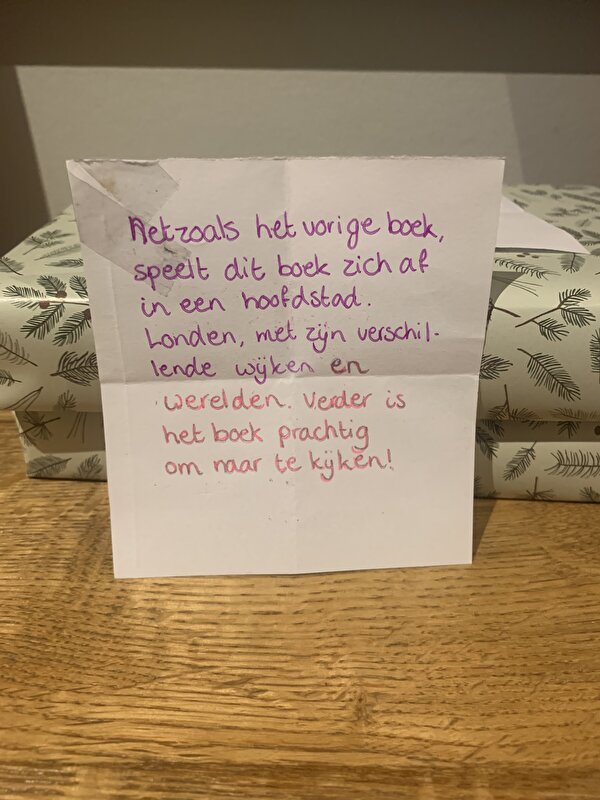 Netzoals het vorige boek,
speelt dit boek zich af
in een hoofdstad.
Londen, met zijn verschil-
lende wijken en
werelden. Verder is
het boek prachtig
om naar te kijken!